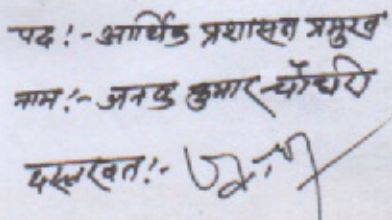 पद :- आर्थिक प्रशासन प्रमुख
नाम :- जनक कुमार चौधरी
दस्तखत :-